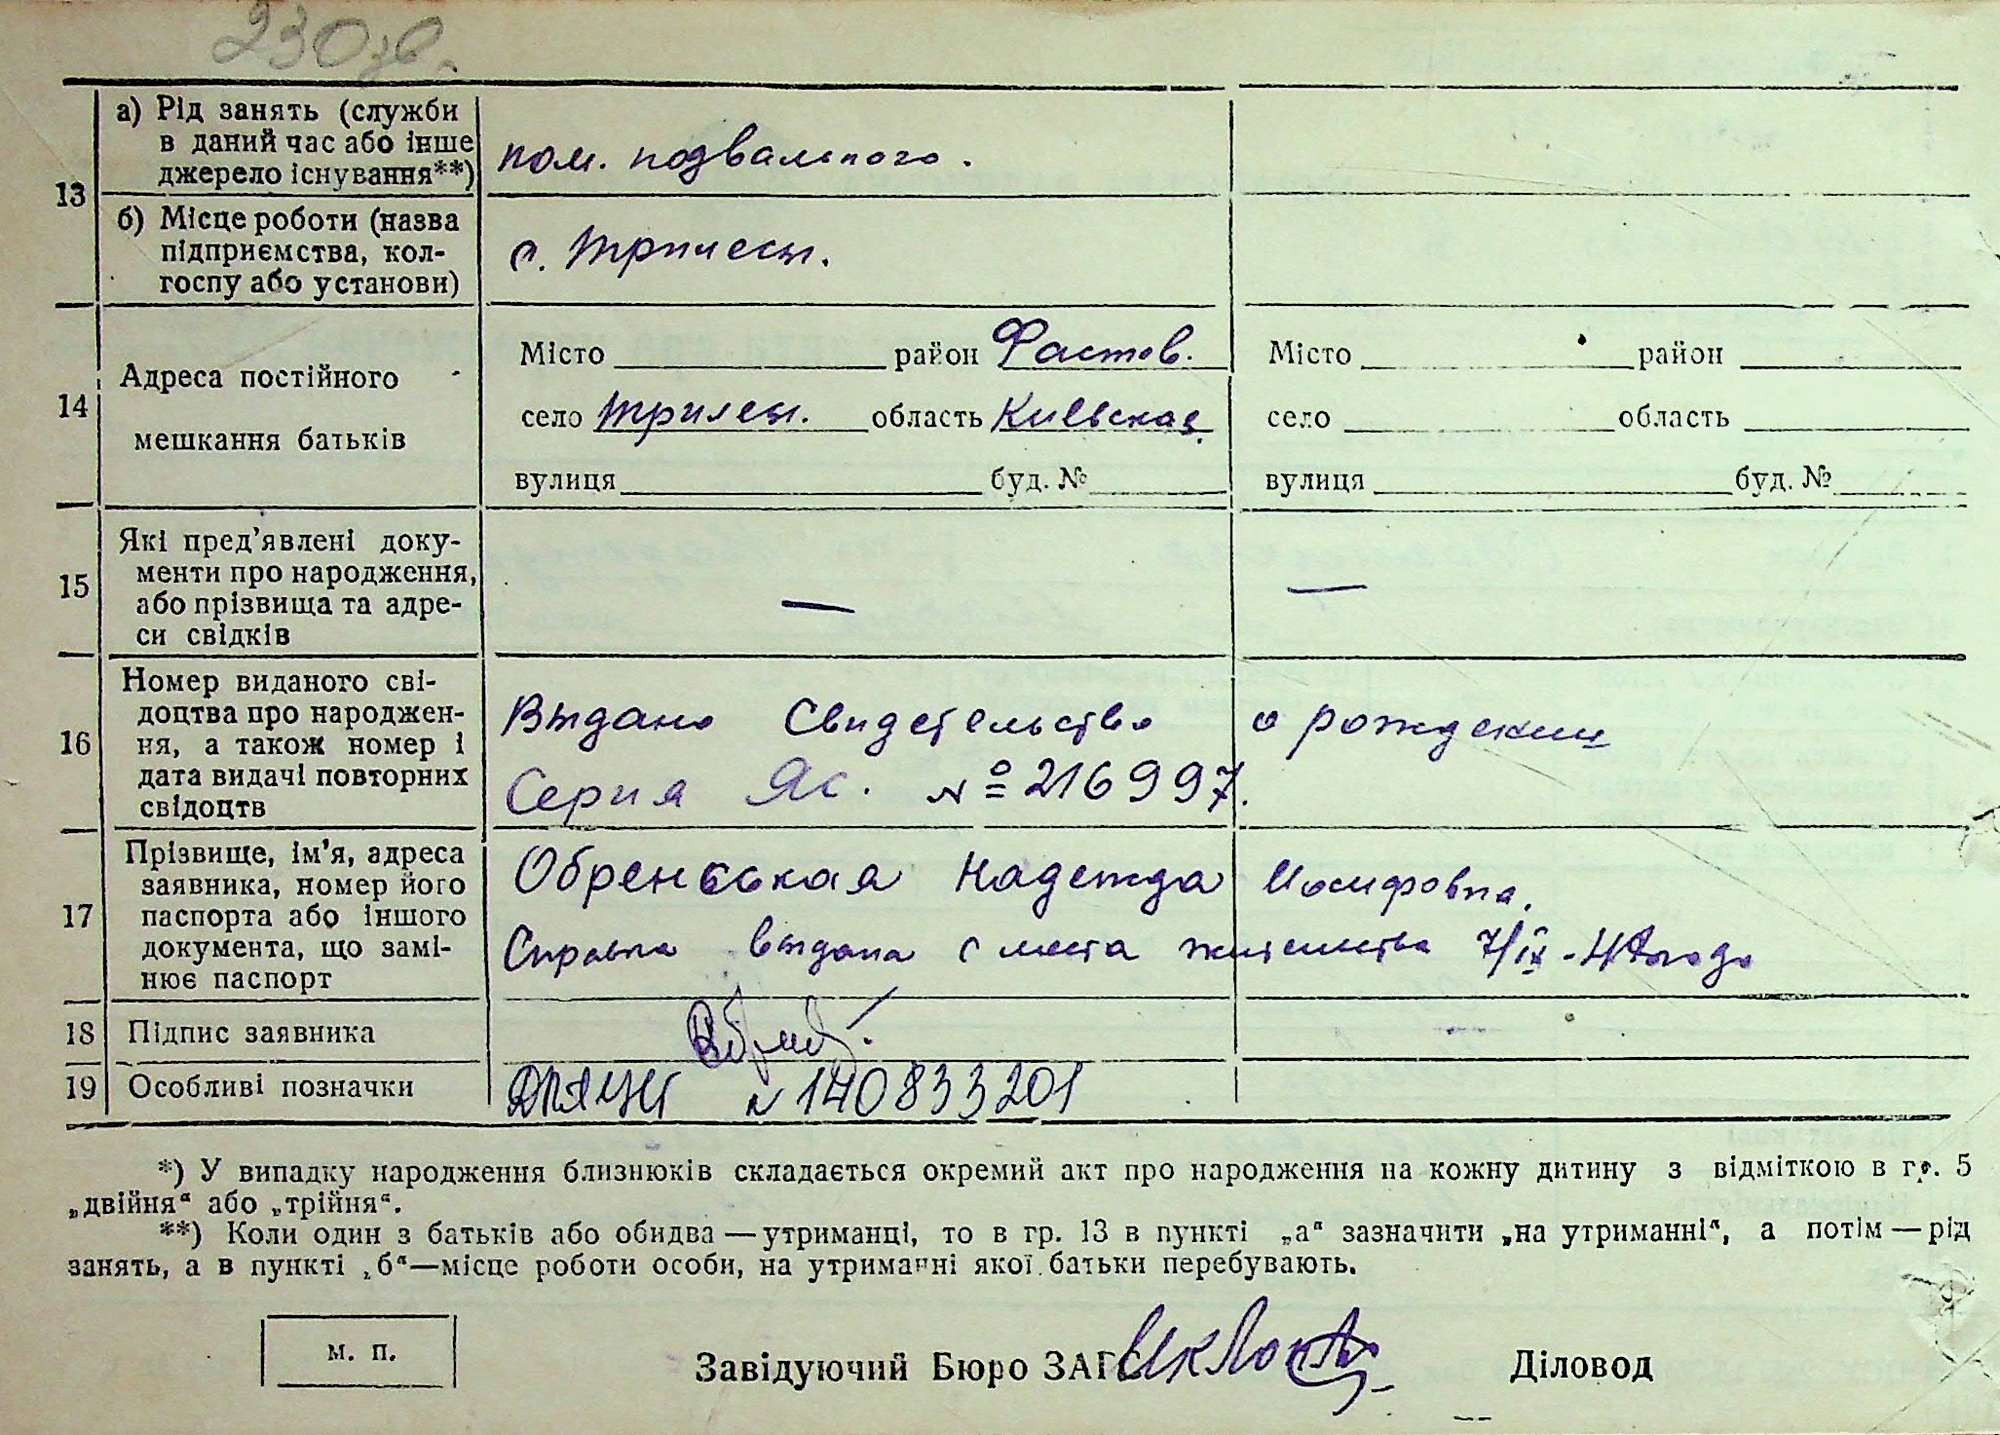 230зв.
13
а) Рід занять (служби
в даний час або інше
джерело існування**)
пом. подвального.
б) Місце роботи (назва
підприємства, кол-
госпу або установи)
с. Трилесы.
14
Адреса постійного
мешкання батьків
Місто район Фастов.
село Трилесы. область Киевская.
вулиця буд. №
Місто район
село область
вулиця буд. №
15
Які пред'явлені доку-
менти про народження,
або прізвища та адре-
си свідків
—
—
16
Номер виданого сві-
доцтва про народжен-
ня, а також номер і
дата видачі повторних
свідоцтв
Выдано Свидетельство о рождении
Серия Яс. № 216997.
17
Прізвище, ім'я, адреса
заявника, номер його
паспорта або іншого
документа, що замі-
нює паспорт
Надежда Иосифовна.
Справка выдана с места жительства 7/IX-
18 Підпис заявника
19 Особливі позначки
№ 140833201
*) У випадку народження близнюків складається окремий акт про народження на кожну дитину з відміткою в гр. 5
„двійня“ або „трійня“.
**) Коли один з батьків або обидва — утриманці, то в гр. 13 в пункті „а“ зазначити „на утриманні“, а потім — рід
занять, а в пункті „б“—місце роботи особи, на утриманні якої батьки перебувають.
м. п.
Завідуючий Бюро ЗАГС
Діловод